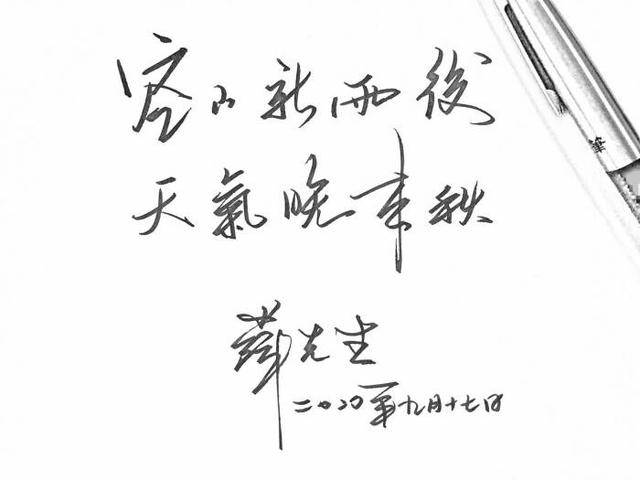 空山新雨後
天氣晚來秋
薛先生
二〇二〇年九月十七日
筆